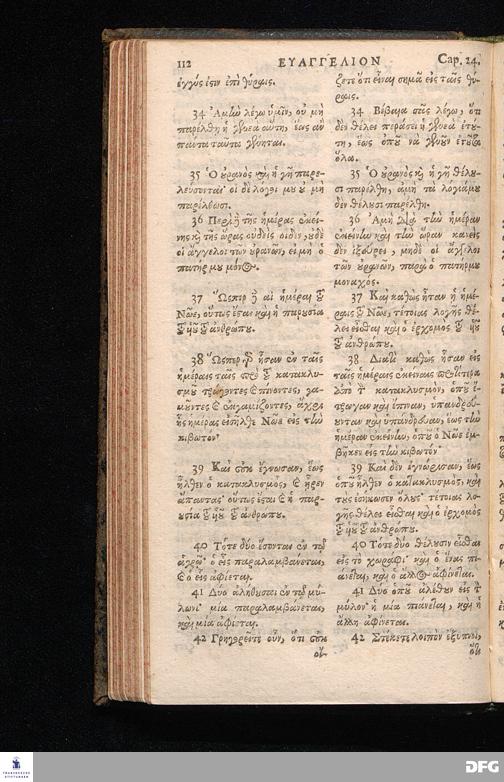 112 ΕΥΑΓΓΕΛΙΟΝ Cap. 24.
ἐγγύς ἐστιν ἐπὶ θύραις.
34 Ἀμὴν λέγω ὑμῖν, οὐ μὴ
παρέλθῃ ἡ γενεὰ αὕτη, ἕως ἂν
πάντα ταῦτα γένηται.
35 Ὁ οὐρανὸς καὶ ἡ γῆ παρε-
λεύσονται· οἱ δὲ λόγοι μου οὐ μὴ
παρέλθωσι.
36 Περὶ δὲ τῆς ἡμέρας ἐκεί-
νης καὶ τῆς ὥρας οὐδεὶς οἶδεν, οὐδὲ
οἱ ἄγγελοι τῶν οὐρανῶν, εἰ μὴ ὁ
πατήρ μου μόνος.
37 Ὥσπερ δὲ αἱ ἡμέραι τοῦ
Νῶε, οὕτως ἔσται καὶ ἡ παρουσία
τοῦ υἱοῦ τοῦ ἀνθρώπου.
38 Ὥσπερ γὰρ ἦσαν ἐν ταῖς
ἡμέραις ταῖς πρὸ τοῦ κατακλυ-
σμοῦ τρώγοντες καὶ πίνοντες, γα-
μοῦντες καὶ ἐκγαμίζοντες, ἄχρι
ἧς ἡμέρας εἰσῆλθε Νῶε εἰς τὴν
κιβωτόν·
39 Καὶ οὐκ ἔγνωσαν, ἕως
ἦλθεν ὁ κατακλυσμὸς, καὶ ἦρεν
ἅπαντας· οὕτως ἔσται καὶ ἡ παρ-
ουσία τοῦ υἱοῦ τοῦ ἀνθρώπου.
40 Τότε δύο ἔσονται ἐν τῷ
ἀγρῷ· ὁ εἷς παραλαμβάνεται,
καὶ ὁ εἷς ἀφίεται.
41 Δύο ἀλήθουσαι ἐν τῷ μύ-
λωνι· μία παραλαμβάνεται,
καὶ μία ἀφίεται.
42 Γρηγορεῖτε οὖν, ὅτι οὐκ
οἴ-
ξετε ὅτι εἶναι σημὰ εἰς ταῖς θύ-
ραις.
34 Βέβαια σᾶς λέγω, ὅτι
δὲν θέλει περάσει ἡ γενεὰ ἐτού-
τη, ἕως ὁποῦ νὰ γενοῦν ἐτοῦτα
ὅλα.
35 Ὁ οὐρανὸς καὶ ἡ γῆ θέλου-
σι παρέλθῃ, ἀμὴ τὰ λογιάμου
δὲν θέλουσι παρέλθῃ.
36 Ἀμὴ διὰ τὴν ἡμέραν
ἐκείνην καὶ τὴν ὥραν κανεὶς
δὲν ἐξεύρει, μηδὲ οἱ ἄγγελοι
τῶν οὐρανῶν, παρὰ ὁ πατήρμου
μοναχος.
37 Καὶ καθὼς ἦταν ἡ ἡμέ-
ραις τοῦ Νῶε, τέτοιας λογῆς θέ-
λει εἶσθαι καὶ ὁ ἐρχομὸς τοῦ υἱοῦ
τοῦ ἀνθρώπου.
38 Διατὶ καθὼς ἦσαν εἰς
ταῖς ἡμέραις ἐκείναις προτίτερα
ἀπὸ τὸν κατακλυσμὸν, ὁποῦ ἔ-
τρωγαν καὶ ἔπιναν, ὑπανδρεύ-
ουνταν καὶ ὑπάνδρευαν, ἕως τὴν
ἡμέραν ἐκείνην, ὁποῦ ὁ Νῶε ἐμ-
βῆκεν εἰς τὴν κιβωτόν·
39 Καὶ δὲν ἐγνώρισαν, ἕως
ὁποῦ ἦλθεν ὁ κατακλυσμὸς, καὶ
τοὺς ἐσήκωσεν ὅλους· τέτοιας λο-
γῆς θέλει εἶσθαι καὶ ὁ ἐρχομὸς
τοῦ υἱοῦ τοῦ ἀνθρώπου.
40 Τότε δύο θέλουσιν εἶσθαι
εἰς τὸ χωράφι· καὶ ὁ ἕνας πι-
άνεται, καὶ ὁ ἄλλος ἀφίνεται.
41 Δύο ὁποῦ ἀλέθουν εἰς τὸν
μύλον· ἡ μία πιάνεται, καὶ ἡ
ἄλλη ἀφίνεται.
42 Στέκετε λοιπὸν ἔξυπνοι,
ὅτι
FRANCKESCHE STIFTUNGEN
DFG